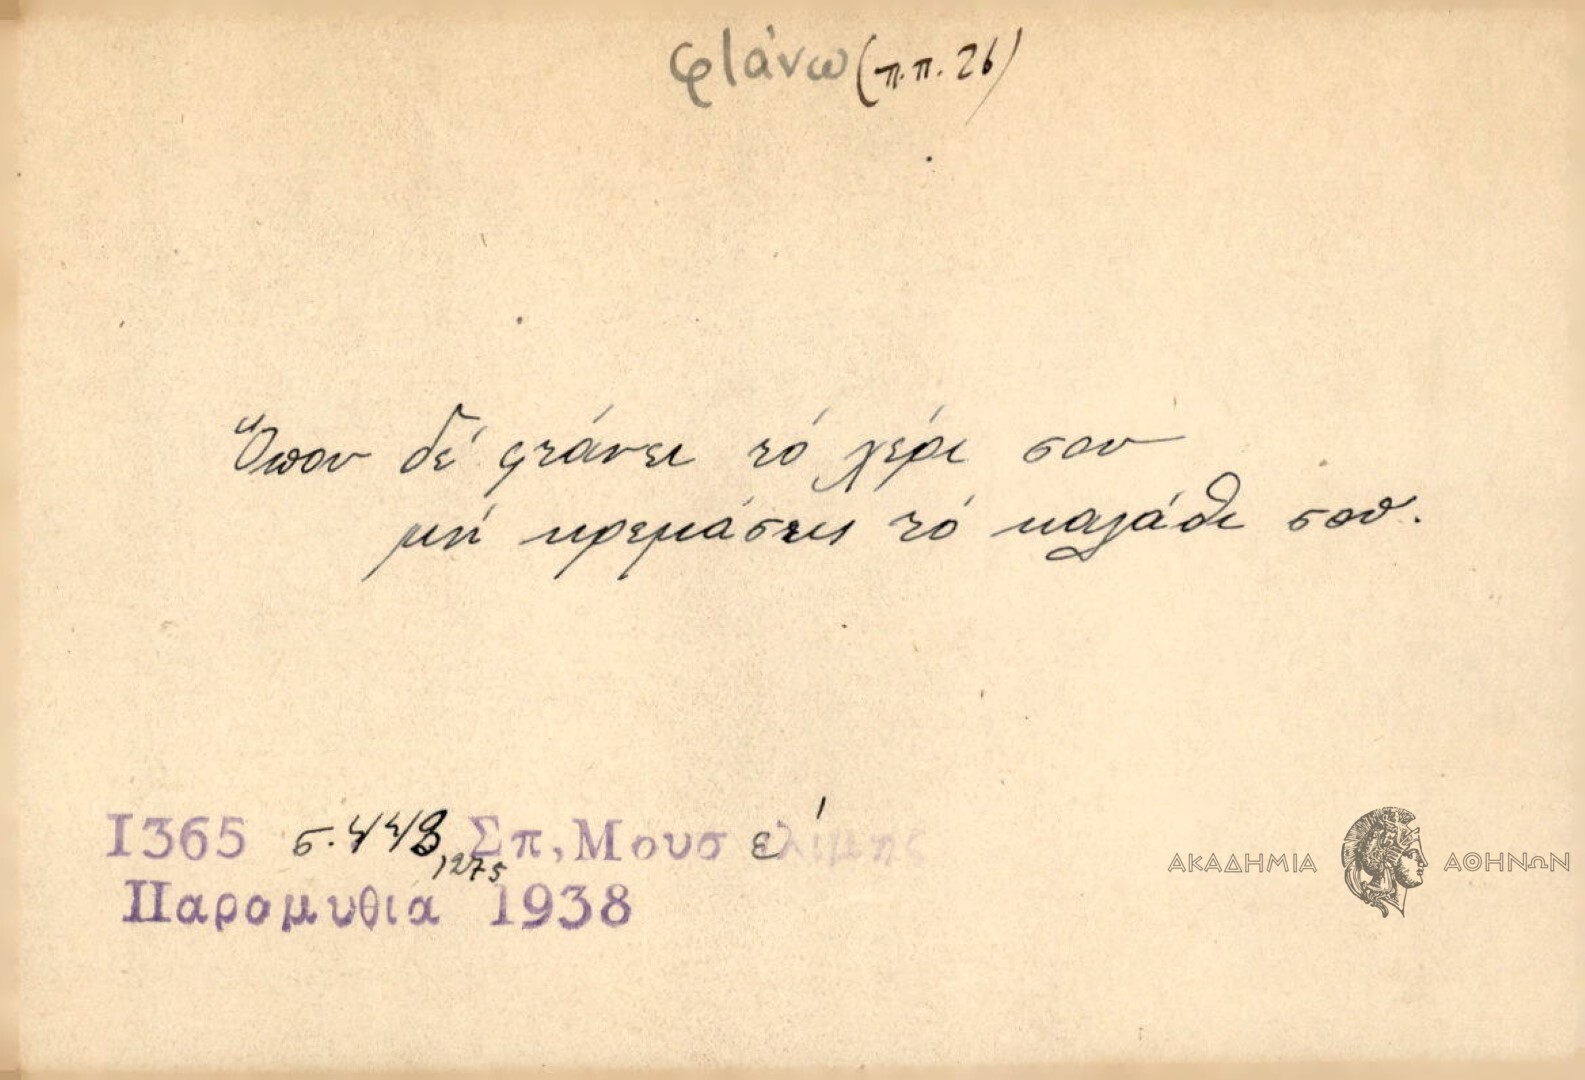 φτάνω (π.π. 26)
Ὅπου δέ φτάνει τό χέρι σου
μή κρεμάσεις τό καλάθι σου.
1365 σ. 448, 1275 Σπ. Μουσελίμης
Παραμυθιά 1938
ΑΚΑΔΗΜΙΑ ΑΘΗΝΩΝ